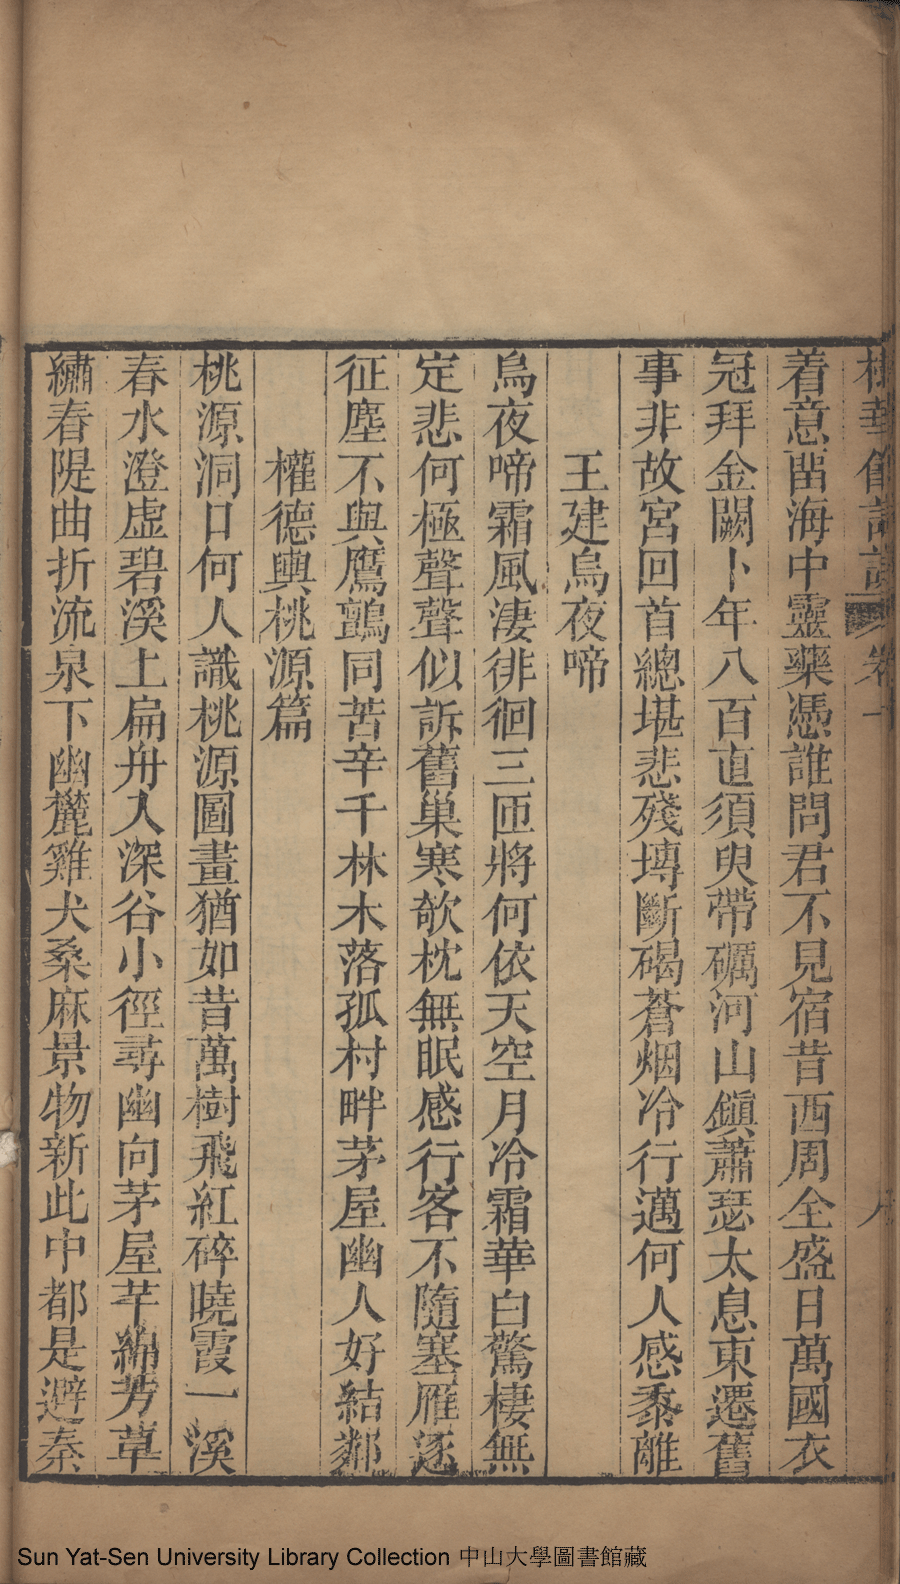 華館詩話 卷一
着意留海中靈藥憑誰問君不見宿昔西周全盛日萬國衣
冠拜金闕卜年八百直須臾帶礪河山鎮蕭瑟太息東遷舊
事非故宮回首總堪悲殘塼斷碣蒼烟冷行邁何人感黍離
王建烏夜啼
烏夜啼霜風淒徘徊三匝將何依天空月冷霜華白驚棲無
定悲何極聲聲似訴舊巢寒欹枕無眠感行客不隨塞雁逐
征塵不與鷹鸇同苦辛千林木落孤村畔茅屋幽人好結鄰
權德輿桃源篇
桃源洞口何人識桃源圖畫猶如昔萬樹飛紅碎曉霞一溪
春水澄虛碧溪上扁舟入深谷小徑尋幽向茅屋芊綿芳草
繡春隄曲折流泉下幽麓雞犬桑麻景物新此中都是避秦
Sun Yat-Sen University Library Collection 中山大學圖書館藏